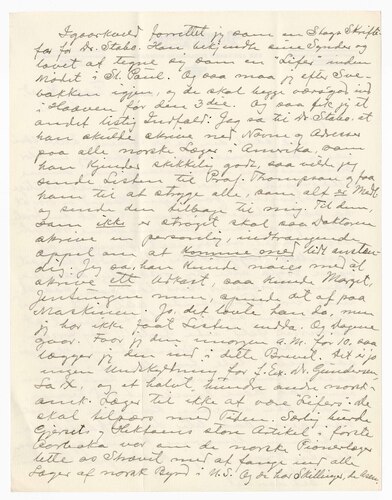 Igaarkveld forrettet jeg som en Slags Skrifte-
far for Dr. Stabo. Han bekjendte sine Synder og
lovet at tegne sig som en "Lifer" inden
Mødet i St. Paul. Og saa maa jeg efter Sve-
bakken igjen, og de skal begge være
i Haaven før den 3die. Og saa fik jeg et
andet listig Indfald. Jeg sa til Dr. Stabo, at
han skulde skrive ned Navn og Adresse
paa alle norske Læger i Amerika, som
han kjender skikkelig godt, saa vilde jeg
sende Listen til Prof. Thompson og faa
ham til at stryge alle, som alt er Medl.
og sende den tilbage til mig. Til dem,
som ikke er strøget, skal saa Doktoren
skrive en personlig, indtrængende
appel om at komme med lidt
dig. Jeg sa, han kunde nøies med at
skrive ett Utkast, saa kunde Margit,
Jenten min, det af paa
Maskinen. Jo, det lovte han da, men
jeg har ikke faat Listen endda. Og Dagene
gaar. Faar jeg den imorgen a.M. før 10, saa
lægger jeg den ind i dette Brevet. Det er jo
ingen Undskyldning for L. Ex. Dr. Gundersen
La X, og et halvt hundre andre norsk-
amrk. Læger til ikke at være Lifers. De
skal tilpers med Piben. Saa burde
Gjerset's og Hektoens store Artikel i første
om de norske Pionerlæger
lette os Strævet med at fange ind alle
Læger af norsk Byrd i U.S. Og de har Skillinger,